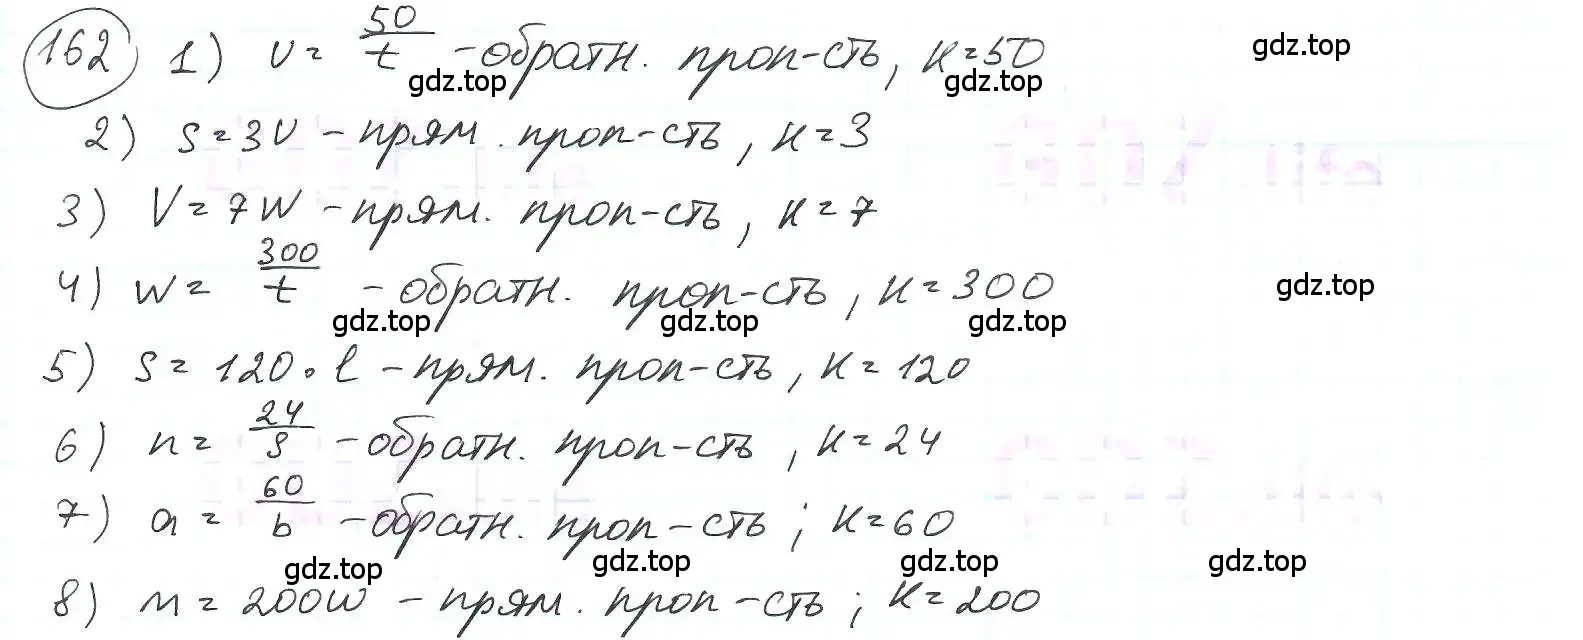 162 1) v = 50/t - обратн. проп-сть, к=50
gdz.top
gdz.top gdz.top
2) s = 3v - прям. проп-сть, к=3
3) V = 7W - прям. проп-сть, к=7
4) w = 300/t - обратн. проп-сть, к=300
gdz.top
gdz.top gdz.top gdz.top
5) s = 120 · l - прям. проп-сть, к=120
6) n = 24/s - обратн. проп-сть, к=24
7) a = 60/b - обратн. проп-сть; к=60
gdz.top gdz.top gdz.top gdz.top
8) м = 200w - прям. проп-сть; к=200